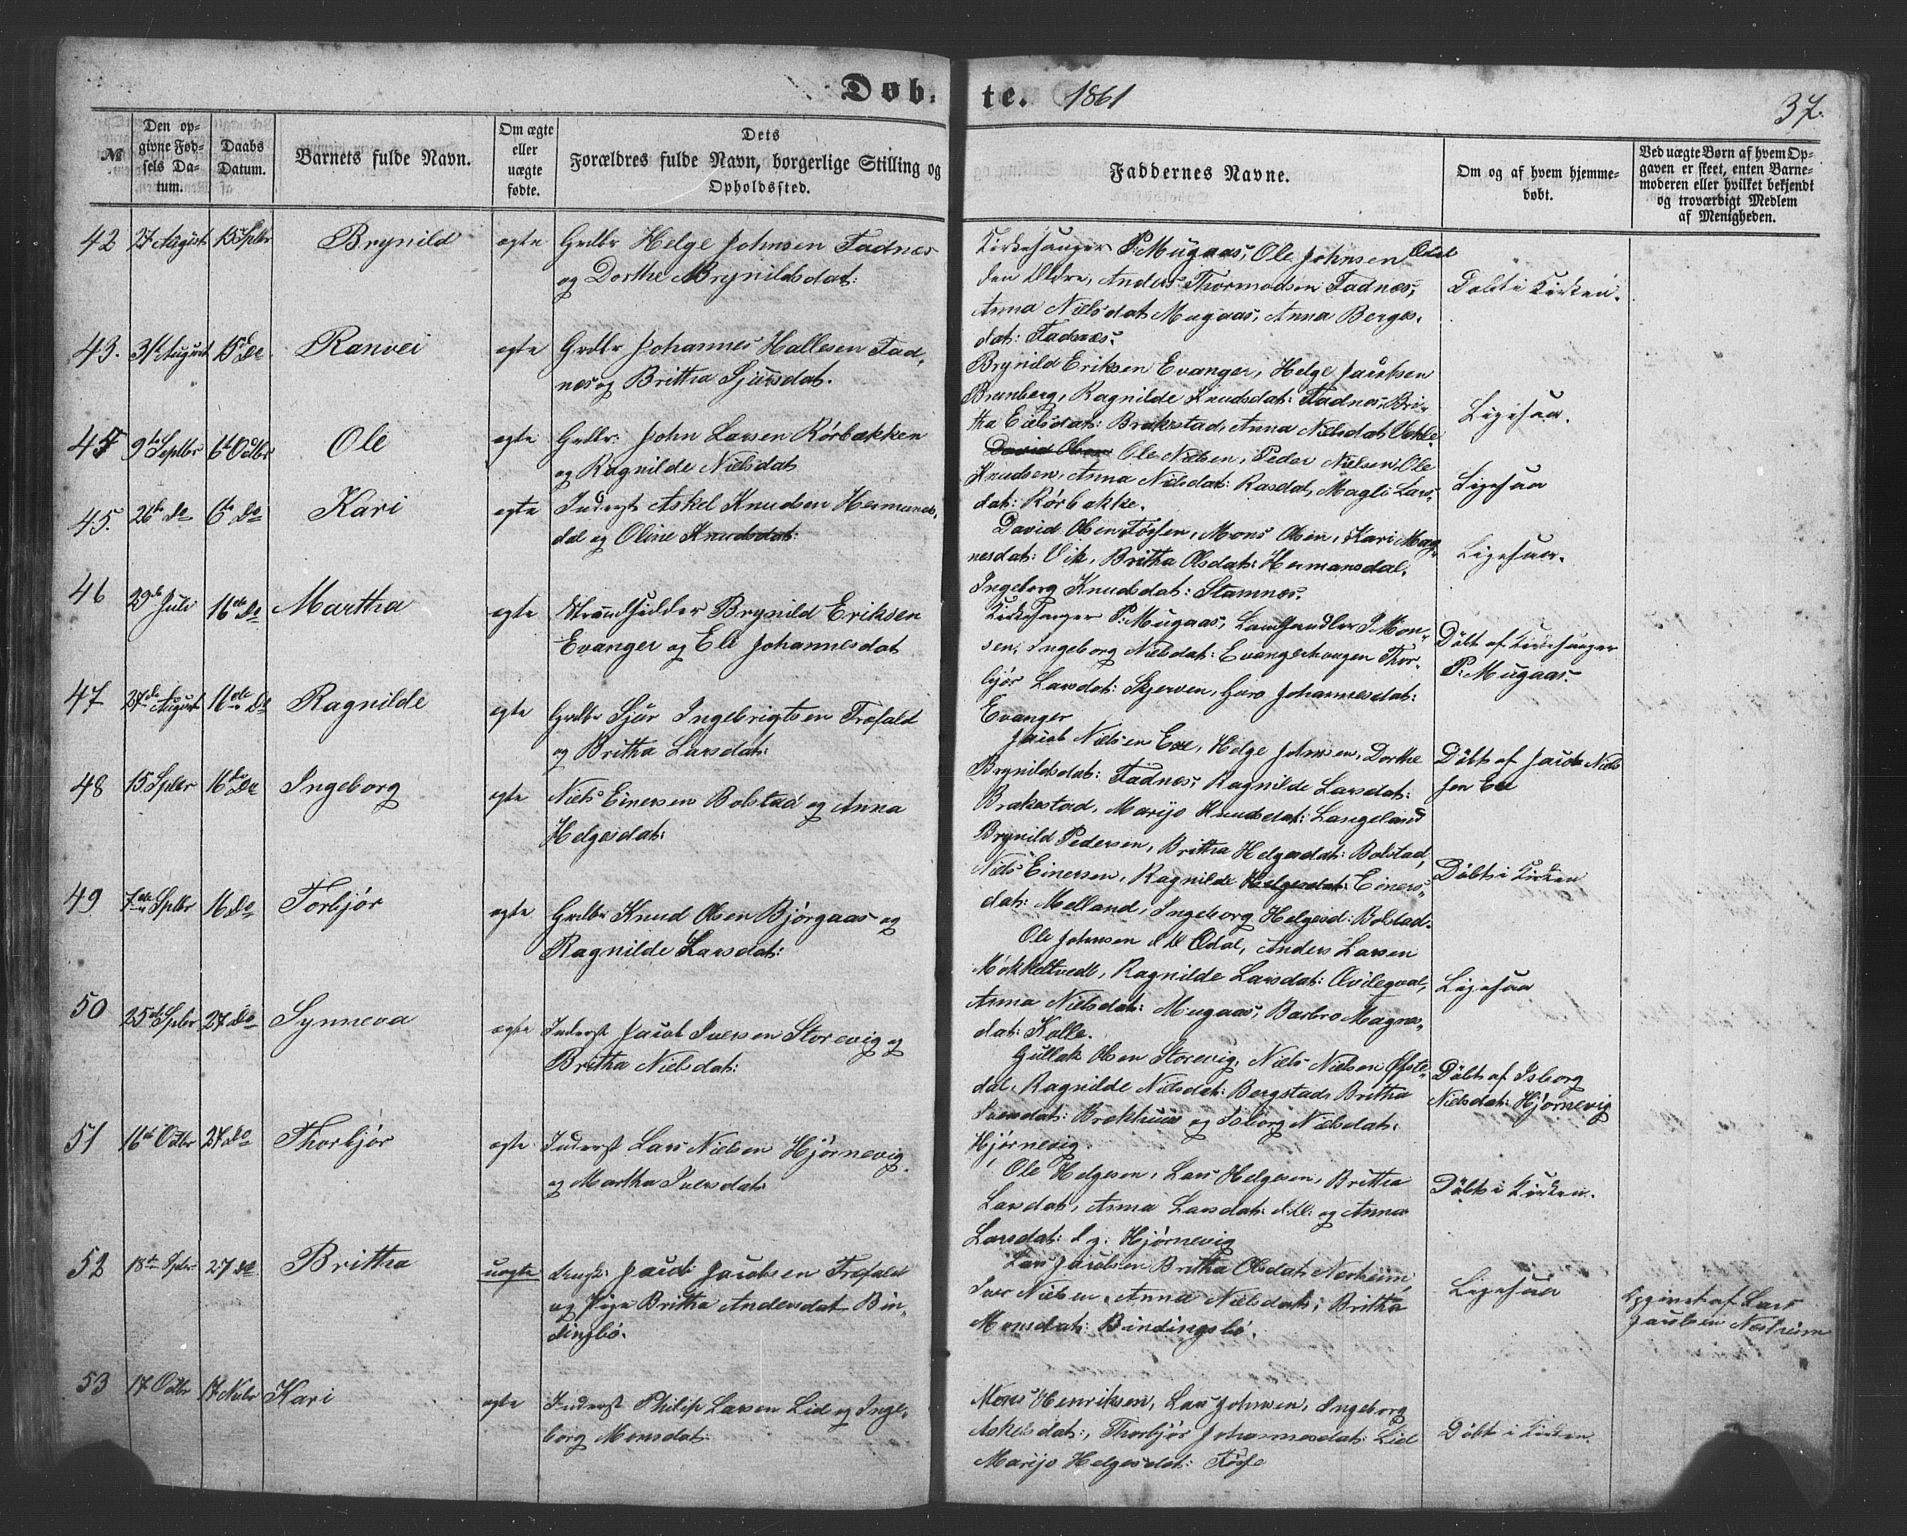 Døb-te. 1861
37.
№
Den opgivne Fødsels Datum.
Daabs Datum.
Barnets fulde Navn.
Om ægte eller uægte fødte.
Dets Forældres fulde Navn, borgerlige Stilling og Opholdssted.
Faddernes Navne.
Om og af hvem hjemmedøbt.
Ved uægte Børn af hvem Opgaven er skeet, enten Barnemoderen eller hvilket bekjendt og troværdigt Medlem af Menigheden.
42 27 August 15 Sptbr Brynild ægte Grdbr Helge Johnsen Fadnes
og Dorthe Brynildsdat:
Kirkesanger P: Mugaas, Ole Johnsen Odal
den Eldre, Anders Thormodsen Fadnes,
Anna Nielsdat: Mugaas, Anna Berges-
dat: Fadnæs.
Døbt i Kirken.
43. 31 August 15 do Ranvei ægte Grdbr Johannes Hallesen Fad-
nes og Brittha Sjursdat.
Brynild Eriksen Evanger, Helge Jacobsen
Brunberg, Ragnilde Knudsdat: Fadnes, Bri-
tha Eilsdat: Brakestad, Anna Nielsdat
Ligesaa.
45 9de Septbr 6te Octbr Ole ægte Grdbr: John Larsen Rørbakken
og Ragnilde Nielsdat
David Olsen Ole Nielsen, Peder Nielsen, Ole
Knudsen, Anna Nielsdat: Rasdal, Magli Lars-
dat: Rørbakke.
Ligesaa
45. 26de do 6te do Kari ægte Inderst Askel Knudsen Hermans-
dal og Oline Knudsdat:
David Olsen Fossen, Mons Olsen, Kari Mag-
nesdat: Vik, Britha Olsdat: Hermansdal.
Ingeborg Knudsdat: Stamnes.
Ligesaa.
46 29de Juli 16de do Martha ægte Strandsidder Brynild Eriksen
Evanger og Eli Johannesdat
Kirkesanger P: Mugaas, Landhandler I Mon-
sen, Ingeborg Nielsdat: Evangerhougen Thor-
bjør Larsdat: Skjerven, Guro Johannesdat:
Evanger
Døbt af Kirkesanger
P: Mugaas.
47 27de August 16de do Ragnilde ægte Grdbr Sjur Ingebrigtsen Træfald
og Britha Larsdat:
Jacob Nielsen Exe, Helge Johnsen, Dorthe
Brynildsdat: Fadnes, Ragnilde Larsdat:
Brakestad, Marijo Knudsdat: Langeland
Døbt af Jacob Niel-
sen Exe
48 15 Sptbr 16de do Ingeborg ægte Niels Einersen Bolstad og Anna
Helgesdat:
Brynild Pedersen, Brittha Helgesdat: Bolstad,
Niels Einersen, Ragnilde Helgesdat: Einers-
dat: Melland, Ingeborg Helgesd: Bolstad.
Døbt i Kirken
49 7de Sptbr 16 do Torbjør ægte Grdbr Knud Olsen Bjørgaas og
Ragnilde Larsdat:
Ole Johnsen Odal, Anders Larsen
Møkkeltvedt, Ragnilde Larsdat:
Anna Nielsdat: Mugaas, Barbro Magnes-
dat: Kalle.
Ligesaa
50 25de Sptbr 27 do Synneva ægte Inderst Jacob Iversen Storevig og
Britha Nielsdat:
Gullak Olsen Storevig, Niels Nielsen Øxte-
dal, Ragnilde Nielsdat: Bergstad, Britha
Iversdat: og Isborg Nielsdat:
Hjørnevig.
Døbt af Isborg
Nielsdat: Hjørnevig
51 16de Octbr 27 do Thorbjør ægte Inderst Lars Nielsen Hjørnevig
og Martha Iversdat:
Ole Helgesen, Lars Helgesen, Brittha
Larsdat, Anna Larsdat: d.Æ: og Anna
Larsdat: d. y: Hjørnevig
Døbt i Kirken.
52 18de Sptbr 27 do Brittha uægte Jacob Jacobsen Træfald
og Pige Britha Andersdat Bin-
dingbø.
Lars Jacobsen Britha Olsdat: Nesheim,
Iver Nielsen, Anna Nielsdat:, Britha
Monsdat: Bindingsbø.
Ligesaa
Opgivet af Lars
Jacobsen Nesheim
53 17 Octbr 17 Nvbr Kari ægte Inderst Philip Larsen Lid og Inge-
borg Monsdat:
Mons Henriksen, Lars Johnsen, Ingeborg
Askelsdat:, Thorbjør Johannesdat: Lid
Marijo Helgesdat: Fosse
Døbt i Kirken.